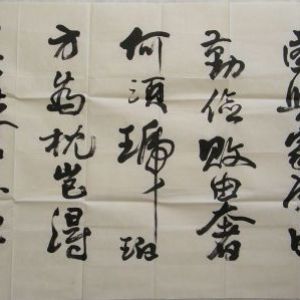 國與家成由
勤俭败由奢
何須琥珀
方為枕豈得